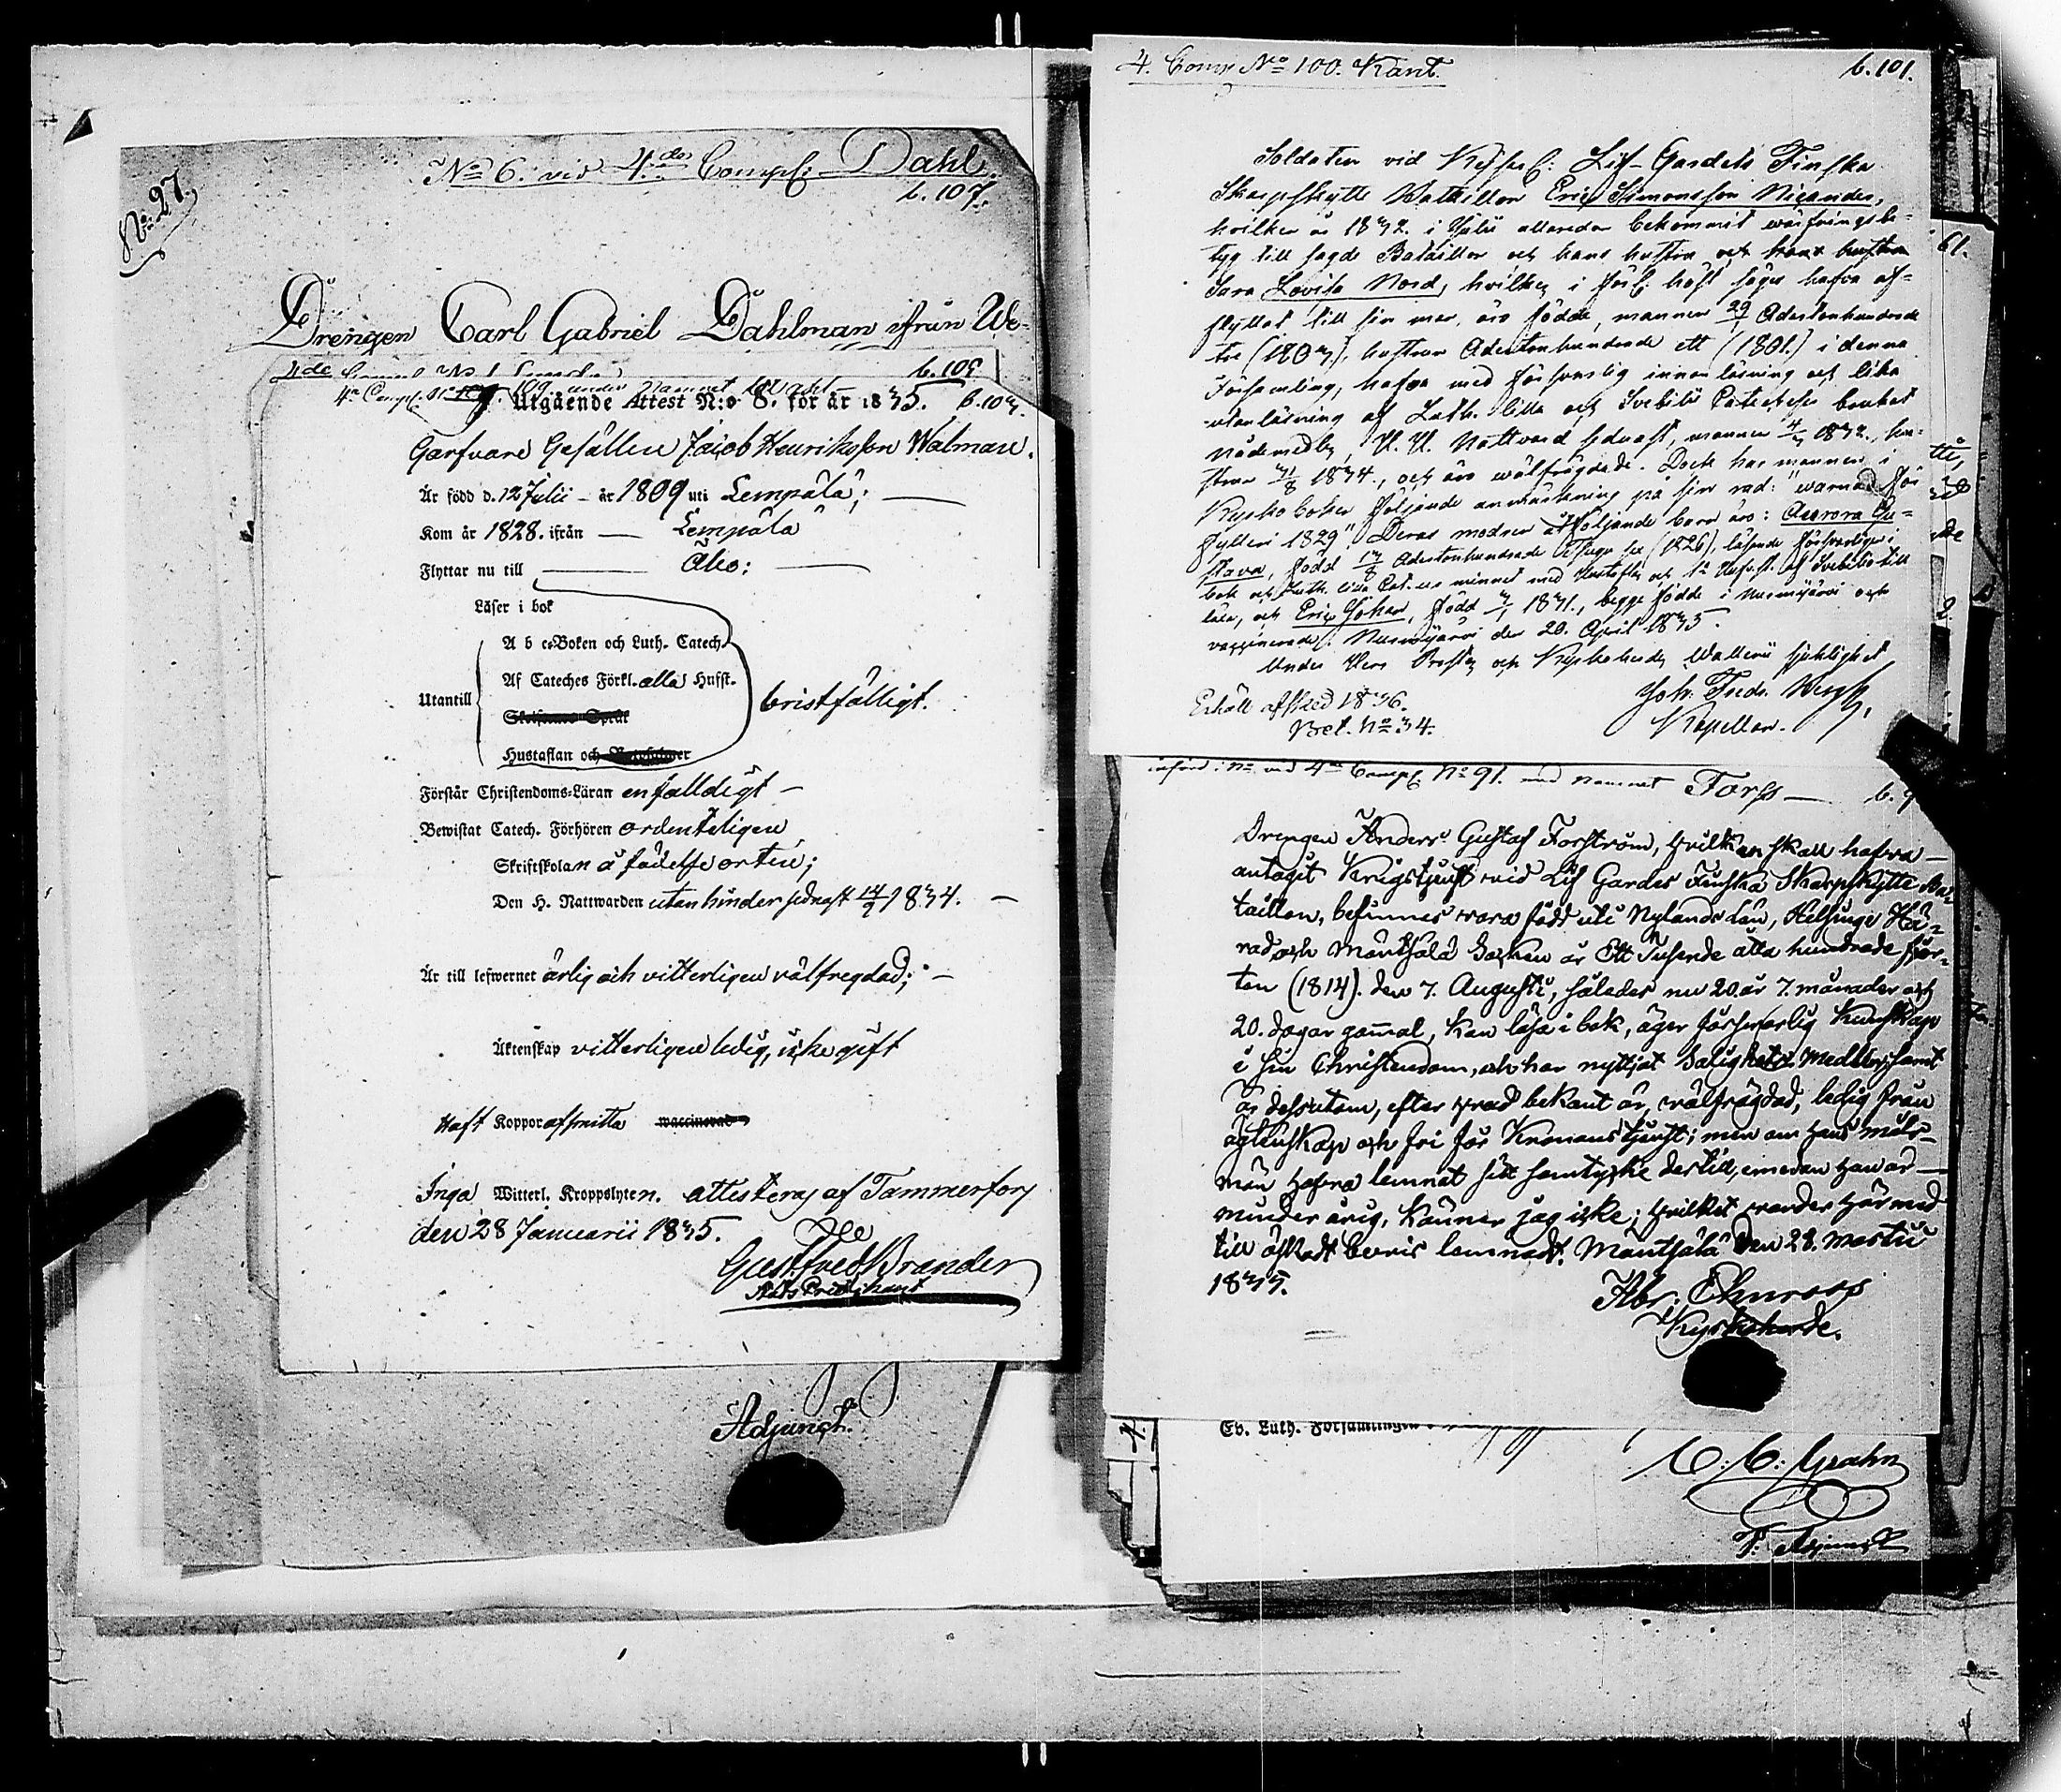 No 27.
No 6. vid 4de Comp: Dahl.
b. 107.
Drengen Carl Gabriel Dahlman ifrån We-
4de No 1
b. 109
4e Comp. 109 under Namnet
b. 103.
Utgående Attest N:o 8. för år 1835.
Garfvare Gesällen Jacob Henriksson Walman.
Är född d. 12 Julii – år 1809 uti Lempälä;
Kom år 1828. ifrån — Lempälä
Flyttar nu till — Åbo;
Läser i bok
A b c-Boken och Luth. Catech.
Af Cateches Förkl. alla Hufst.
Utantill
bristfälligt.
Hustaflan och
Förstår Christendoms-Läran enfalldigt –
Bewistat Catech. Förhören ordenteligen
Skriftskolan å födelse orten;
Den H. Nattwarden utan hinder sednast 14/9 1834. –
Är till lefwernet ärlig och vitterligen välfregdad; –
Äktenskap vitterligen ledig, icke gift
Haft Koppor af smitta waccinerad
Inga Witterl. Kroppslyten. attesteras af Tammerfors
den 28 Januarii 1835.
Gust. Fred. Brander
Adjunct.
4. Comp No 100. Kant.
b. 101.
Soldaten vid Kejserl: Lif-Gardets Finska
Skarpskytte Battaillon Eric Simonsson Nicander,
hvilken år 1832. i Julii allaredan bekommit värfningsbe-
tyg till sagde Bataillon och hans hustru och hans hustru
Sara Lovisa Nord, hvilken i förl: höst säges hafva af-
flyttat till sin man, äro födde, mannen 29/ Adertonhundrade
tre (1803), hustrun Adertonhundrade ett (1801.) i denna
Församling, hafva med försvarlig innanläsning och lika
utanläsning af Luth. lilla och Svebilii Cateches brukat
nådemedlen, H. H. Nattvard sednast, mannen 4/ 1832., hu-
strun 31/8 1834., och äro wälfrägdade. Dock har mannen i
Kyrkoboken följande anmärkning på sin rad: "warnad för
fylleri 1829". Deras medner åtföljande barn äro: Aurora Gu-
stava, född 13/8 Adertonhundrade Tjugu sex (1826), läsande försvarligen i
bok och Luth. lilla Cat. ur minnet med Hustaflan och 1a Hufvst. af Svebilii till
lära, och Eric Johan, född 3/ 1831., begge födde i Nurmijärvi och
vaccinerade; Nurmijärvi den 20. April 1835.
Under Herr Prosten och Kyrkoherden Wallerii sjuklighet
Joh: Fredr.
Kapellan.
Erhöll afsked 1836.
Bet. No 34.
införd i No vid 4de Comp. No 91. med namnet Forss —
Drengen Anders Gustaf Forström, hvilken skall hafva —
antagit Krigstjenst vid Lif Gardes Finska Skarpskytte Ba-
taillon, befinnes vara född uti Nylands Län, Helsinge Hä-
rad och Mäntsälä Sochen år Ett Tusende åtta hundrade fjor-
ton (1814). den 7. Augusti, således nu 20 år 7. månader och
20. dagar gammal, kan läsa i bok, äger försvarlig kunskap
i sin Christendom, och har nyttjat Salighets Medlen, samt
är dessutom, efter hvad bekant är, välfrägdad, ledig från
ägtenskap och fri för Kronans tjenst; men om hans måls-
män hafva lemnat sitt samtycke dertill, emedan han är —
minder årig, känner jag icke; hvilket varder härmed
till äskadt bevis lemnadt. Mäntsälä den 28. Martii
1835.
Abr: Thuroos
Kyrkoherde.
Ev. Luth. Församlingen
C. C. Grahn
P. Adjunct